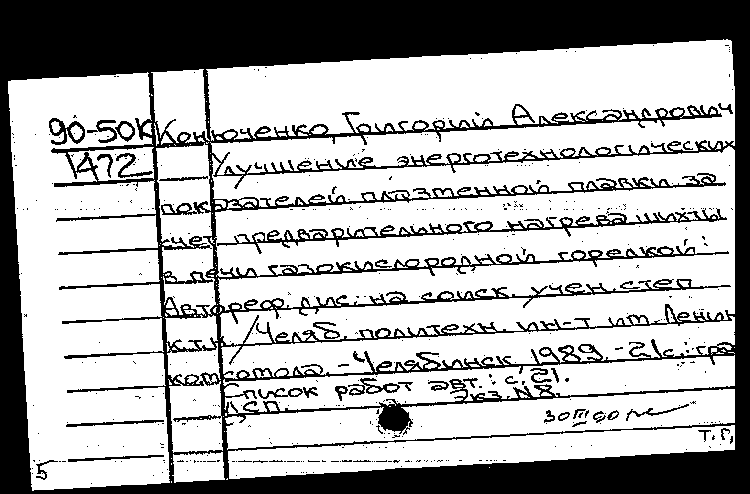 90-50К Конюченко, Григорий Александрович
1472 Улучшение энерготехнологических
показателей плазменной плавки за
счет предварительного нагрева шихты
в печи газокислородной горелкой:
Автореф. дис. на соиск. учен. степ
к.т.н. / Челяб. политехн. ин-т им. Ленин
комсомола. - Челябинск, 1989. - 21с.: гра
Список работ авт.: с. 21.
ДСП. Экз. №
30 III 90
Т. Г,
5